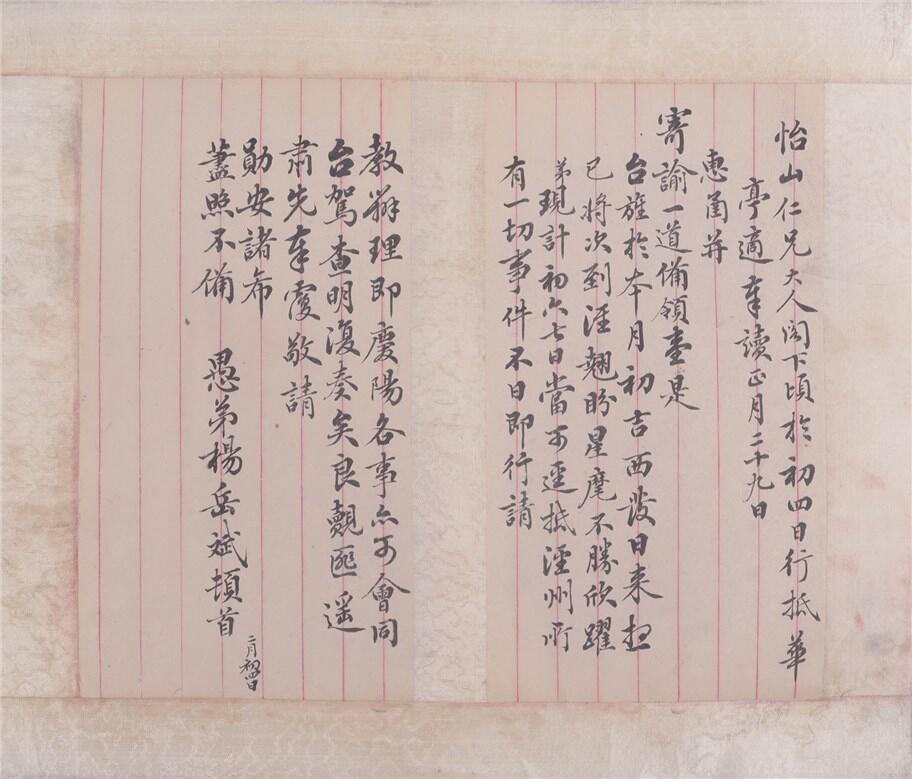 怡山仁兄大人阁下頃於初四日行抵華
亭適奉讀正月二十九日
惠函并
寄諭一道備領壹是
台旌於本月初吉西發日来想
已將次到涇翹盼星麾不勝欣躍
弟現計初六七日當可遄抵涇州所
有一切事件不日即行請
教辦理即慶陽各事亦可會同
台駕查明復奏矣良覿匪遥
肅先奉覆敬請
勛安諸希
藎照不備
愚弟楊岳斌頓首
二月初四日